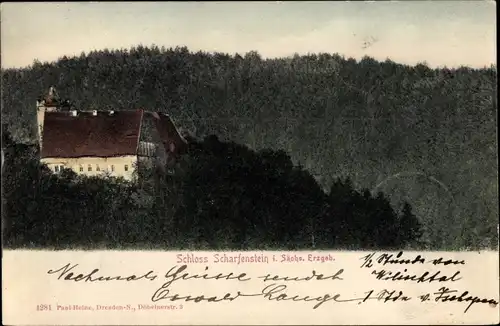 Schloss Scharfenstein i. Sächs. Erzgeb.
Nochmals Grüsse sendet
Oswald Lange
½ Stunde von
Wilischtal
1 Stde v. Zschopau
1281 Paul Heine, Dresden-N., Döbelnerstr. 2